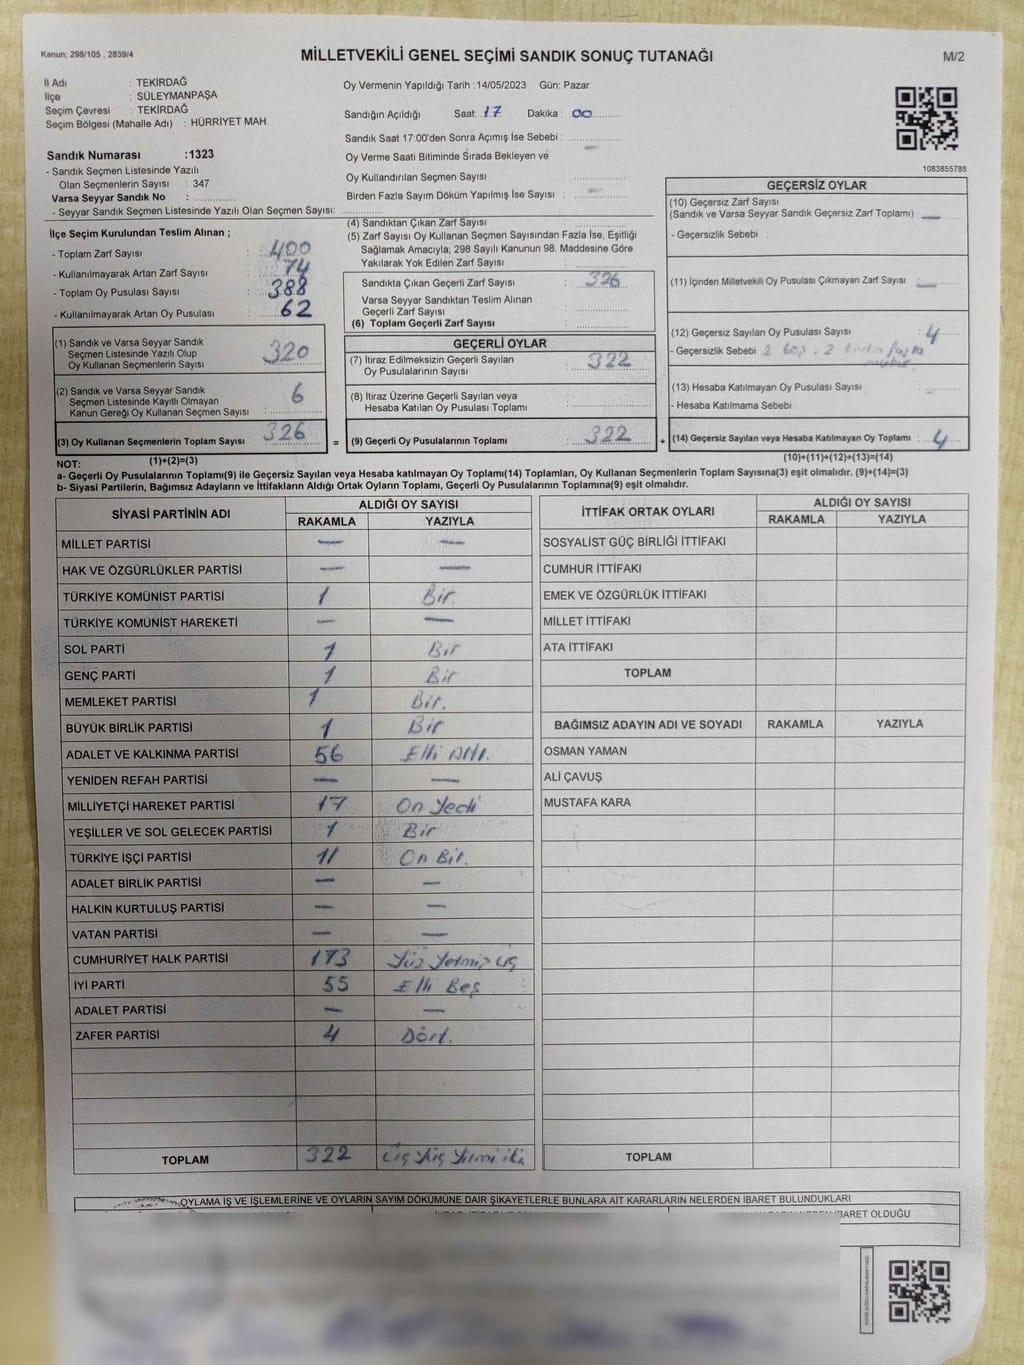 Kanun: 298/105 , 2839/4
MİLLETVEKİLİ GENEL SEÇİMİ SANDIK SONUÇ TUTANAĞI
M/2
İl Adı : TEKİRDAĞ
İlçe : SÜLEYMANPAŞA
Seçim Çevresi : TEKİRDAĞ
Seçim Bölgesi (Mahalle Adı) : HÜRRİYET MAH.
Sandık Numarası :1323
- Sandık Seçmen Listesinde Yazılı
Olan Seçmenlerin Sayısı : 347
Varsa Seyyar Sandık No :
- Seyyar Sandık Seçmen Listesinde Yazılı Olan Seçmen Sayısı:
Oy Vermenin Yapıldığı Tarih :14/05/2023 Gün: Pazar
Sandığın Açıldığı Saat: 17 Dakika : 00
Sandık Saat 17:00'den Sonra Açımış İse Sebebi :
Oy Verme Saati Bitiminde Sırada Bekleyen ve
Oy Kullandırılan Seçmen Sayısı : —
Birden Fazla Sayım Döküm Yapılmış İse Sayısı : —
1083855788
İlçe Seçim Kurulundan Teslim Alınan ;
- Toplam Zarf Sayısı : 400
- Kullanılmayarak Artan Zarf Sayısı : 74
- Toplam Oy Pusulası Sayısı : 388
- Kullanılmayarak Artan Oy Pusulası : 62
(1) Sandık ve Varsa Seyyar Sandık
Seçmen Listesinde Yazılı Olup
Oy Kullanan Seçmenlerin Sayısı : 320
(2) Sandık ve Varsa Seyyar Sandık
Seçmen Listesinde Kayıtlı Olmayan
Kanun Gereği Oy Kullanan Seçmen Sayısı : 6
(3) Oy Kullanan Seçmenlerin Toplam Sayısı : 326
(1)+(2)=(3)
(4) Sandıktan Çıkan Zarf Sayısı :
(5) Zarf Sayısı Oy Kullanan Seçmen Sayısından Fazla İse, Eşitliği
Sağlamak Amacıyla; 298 Sayılı Kanunun 98. Maddesine Göre
Yakılarak Yok Edilen Zarf Sayısı :
Sandıkta Çıkan Geçerli Zarf Sayısı : 326
Varsa Seyyar Sandıktan Teslim Alınan
Geçerli Zarf Sayısı :
(6) Toplam Geçerli Zarf Sayısı :
GEÇERLİ OYLAR
(7) İtiraz Edilmeksizin Geçerli Sayılan
Oy Pusulalarının Sayısı : 322
(8) İtiraz Üzerine Geçerli Sayılan veya
Hesaba Katılan Oy Pusulası Toplamı :
= (9) Geçerli Oy Pusulalarının Toplamı : 322
GEÇERSİZ OYLAR
(10) Geçersiz Zarf Sayısı
(Sandık ve Varsa Seyyar Sandık Geçersiz Zarf Toplamı) : —
- Geçersizlik Sebebi :
(11) İçinden Milletvekili Oy Pusulası Çıkmayan Zarf Sayısı : —
(12) Geçersiz Sayılan Oy Pusulası Sayısı : 4
- Geçersizlik Sebebi 2 boş, 2 birden fazla
mühür
(13) Hesaba Katılmayan Oy Pusulası Sayısı : —
- Hesaba Katılmama Sebebi :
+ (14) Geçersiz Sayılan veya Hesaba Katılmayan Oy Toplamı : 4
(10)+(11)+(12)+(13)=(14)
NOT:
a- Geçerli Oy Pusulalarının Toplamı(9) ile Geçersiz Sayılan veya Hesaba katılmayan Oy Toplamı(14) Toplamları, Oy Kullanan Seçmenlerin Toplam Sayısına(3) eşit olmalıdır. (9)+(14)=(3)
b- Siyasi Partilerin, Bağımsız Adayların ve İttifakların Aldığı Ortak Oyların Toplamı, Geçerli Oy Pusulalarının Toplamına(9) eşit olmalıdır.
SİYASİ PARTİNİN ADI
ALDIĞI OY SAYISI
RAKAMLA YAZIYLA
MİLLET PARTİSİ — —
HAK VE ÖZGÜRLÜKLER PARTİSİ — —
TÜRKİYE KOMÜNİST PARTİSİ 1 Bir.
TÜRKİYE KOMÜNİST HAREKETİ — —
SOL PARTİ 1 Bir
GENÇ PARTİ 1 Bir
MEMLEKET PARTİSİ 1 Bir.
BÜYÜK BİRLİK PARTİSİ 1 Bir
ADALET VE KALKINMA PARTİSİ 56 Elli Altı.
YENİDEN REFAH PARTİSİ — —
MİLLİYETÇİ HAREKET PARTİSİ 17 On Yedi
YEŞİLLER VE SOL GELECEK PARTİSİ 1 Bir
TÜRKİYE İŞÇİ PARTİSİ 11 On Bir.
ADALET BİRLİK PARTİSİ — —
HALKIN KURTULUŞ PARTİSİ — —
VATAN PARTİSİ — —
CUMHURİYET HALK PARTİSİ 173 Yüz Yetmiş Üç
İYİ PARTİ 55 Elli Beş
ADALET PARTİSİ — —
ZAFER PARTİSİ 4 Dört.
TOPLAM 322 Üç Yüz Yirmi iki
İTTİFAK ORTAK OYLARI
ALDIĞI OY SAYISI
RAKAMLA YAZIYLA
SOSYALİST GÜÇ BİRLİĞİ İTTİFAKI
CUMHUR İTTİFAKI
EMEK VE ÖZGÜRLÜK İTTİFAKI
MİLLET İTTİFAKI
ATA İTTİFAKI
TOPLAM
BAĞIMSIZ ADAYIN ADI VE SOYADI RAKAMLA YAZIYLA
OSMAN YAMAN
ALİ ÇAVUŞ
MUSTAFA KARA
TOPLAM
OYLAMA İŞ VE İŞLEMLERİNE VE OYLARIN SAYIM DÖKÜMÜNE DAİR ŞİKAYETLERLE BUNLARA AİT KARARLARIN NELERDEN İBARET BULUNDUKLARI
İBARET OLDUĞU